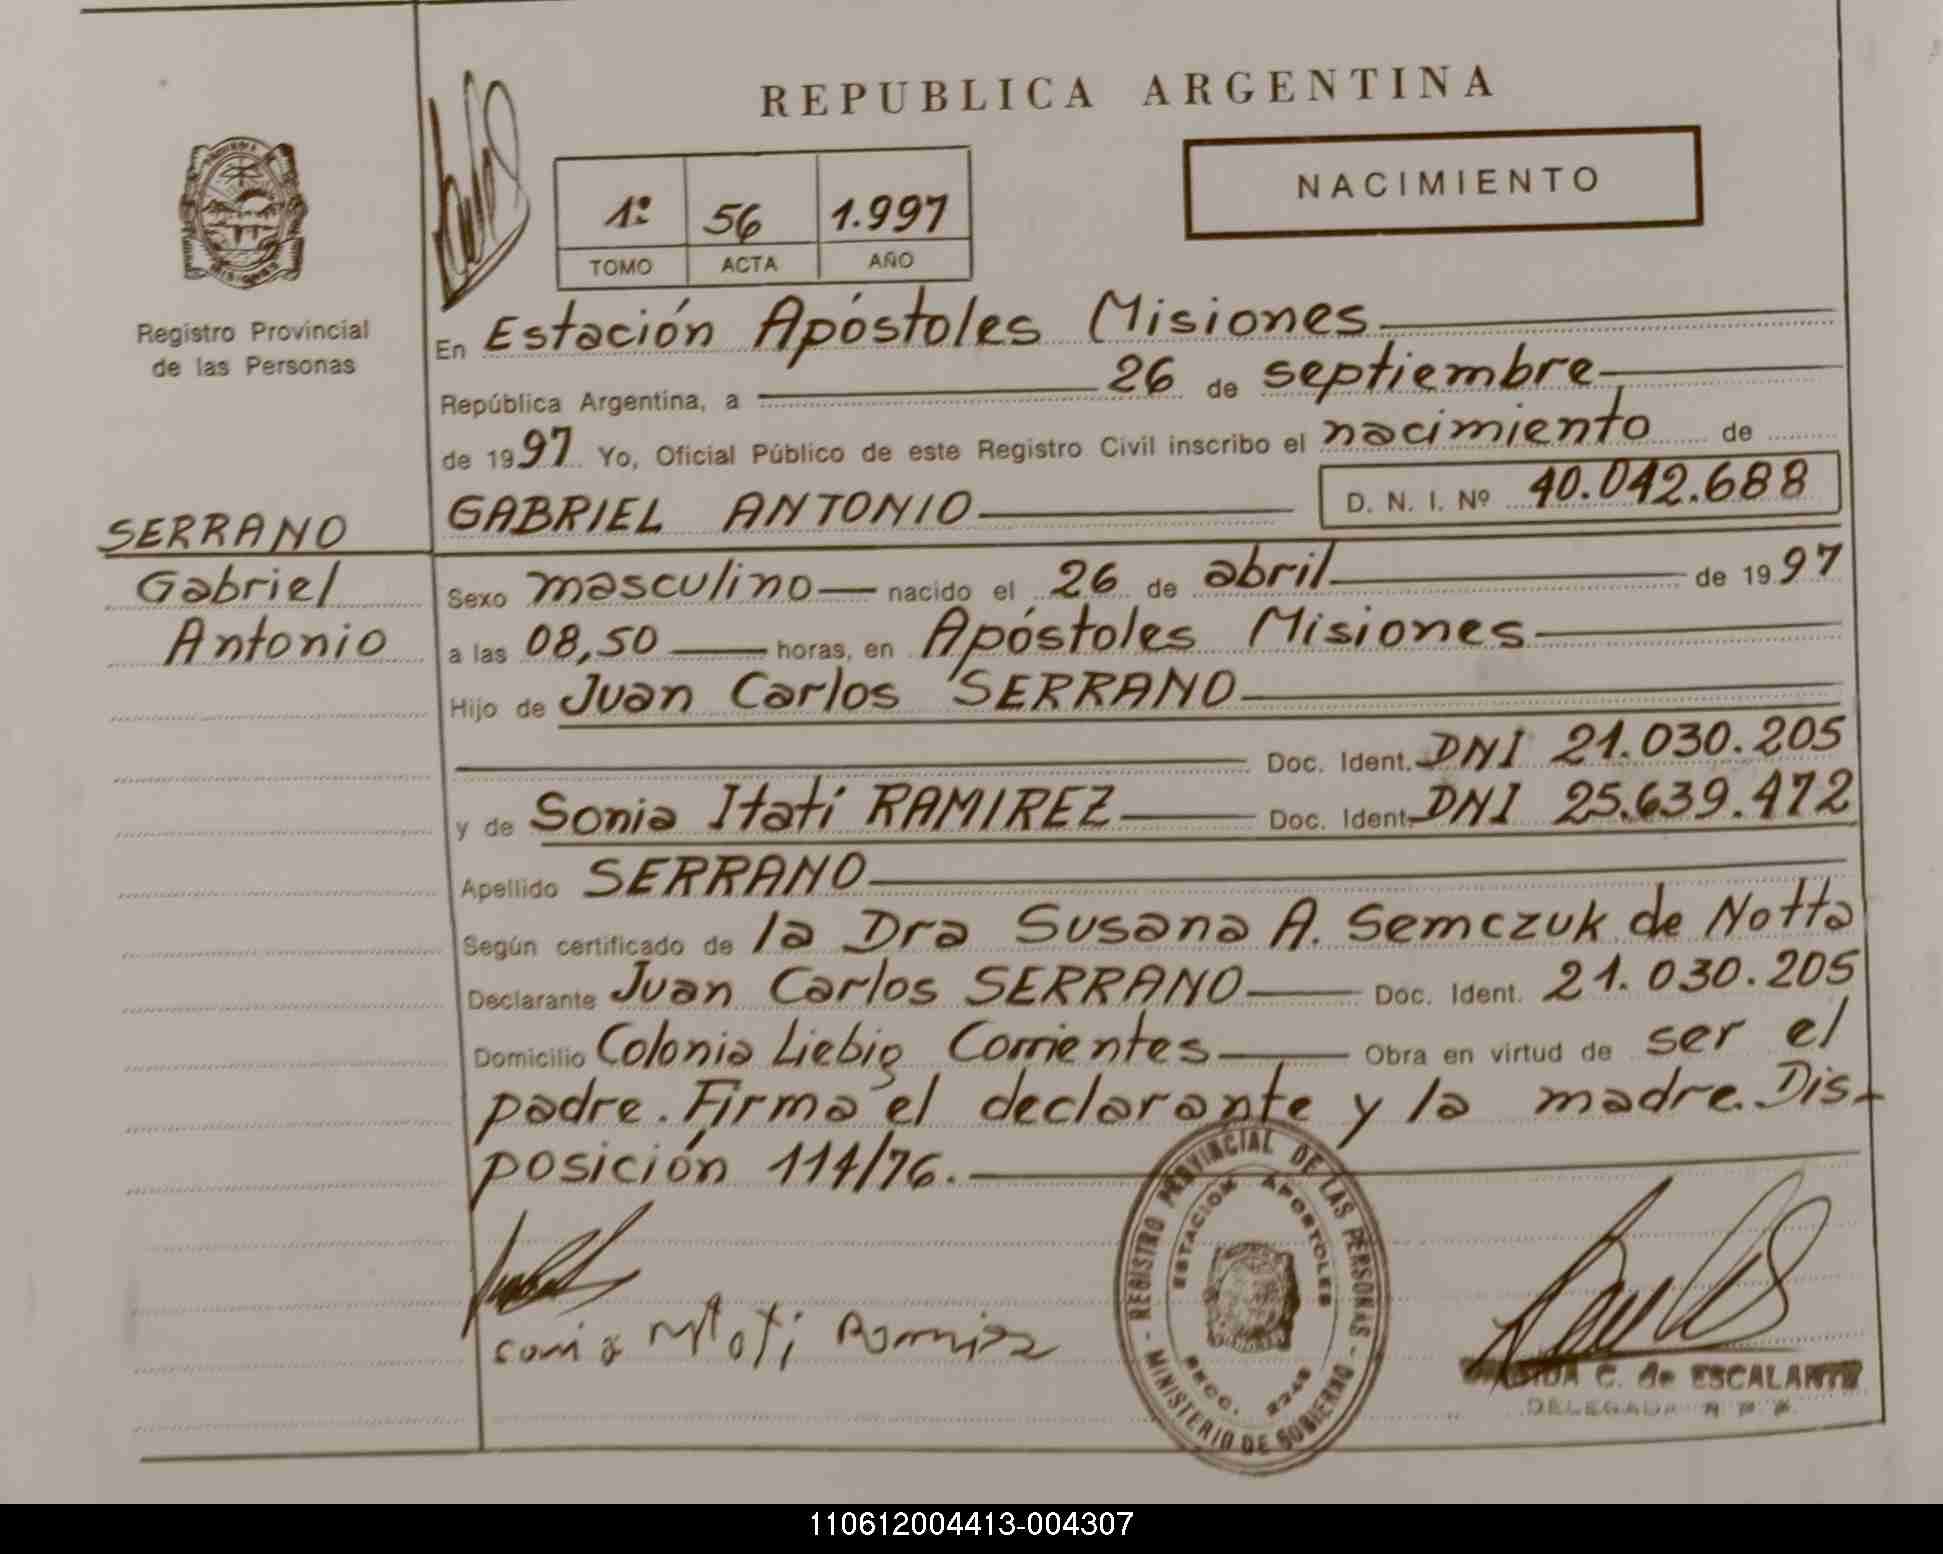 REPUBLICA ARGENTINA
NACIMIENTO
1º 56 1.997
TOMO ACTA AÑO
Registro Provincial
de las Personas
En Estación Apóstoles Misiones
República Argentina, a 26 de septiembre
de 1997 Yo, Oficial Público de este Registro Civil inscribo el nacimiento de
GABRIEL ANTONIO D. N. I. Nº 40.042.688
SERRANO
Gabriel
Antonio
Sexo masculino nacido el 26 de abril de 1997
a las 08,50 horas, en Apóstoles Misiones
Hijo de Juan Carlos SERRANO
Doc. Ident. DNI 21.030.205
y de Sonia Itatí RAMIREZ Doc. Ident. DNI 25.639.472
Apellido SERRANO
Según certificado de la Dra Susana A. Semczuk de Notta
Declarante Juan Carlos SERRANO Doc. Ident. 21.030.205
Domicilio Colonia Liebig Corrientes Obra en virtud de ser el
padre. Firma el declarante y la madre. Dis-
posición 114/76.
REGISTRO PROVINCIAL DE LAS PERSONAS
ESTACION APOSTOLES
MINISTERIO DE GOBIERNO
C. de ESCALANTE
DELEGADA
110612004413-004307